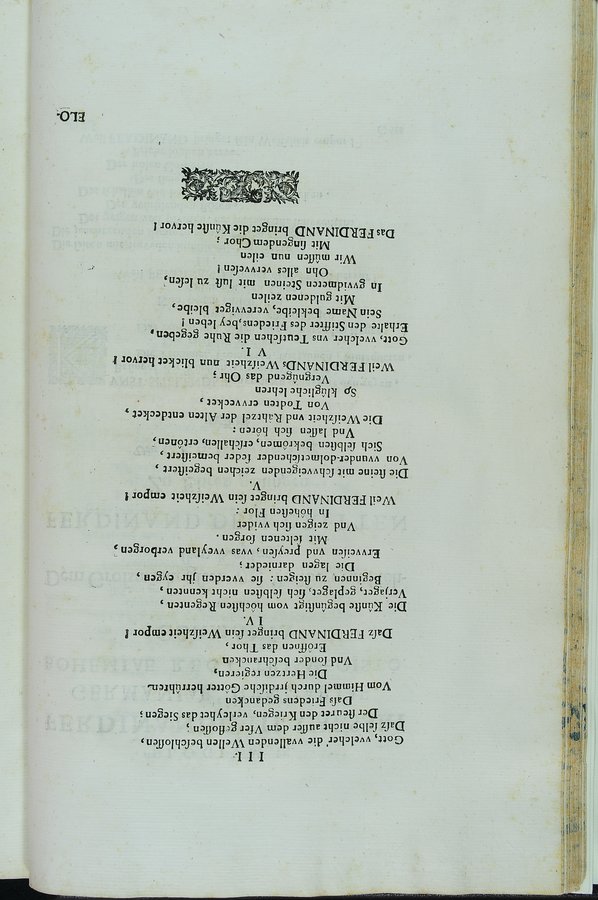 III.
Gott, vvelcher die vvallenden Wellen beschlossen,
Dasz selbe nicht ausser dem Vfer geflossen;
Der steuret den Kriegen, verleyhet das Siegen;
Dass Friedens gedancken
Vom Himmel durch jrrdische Götter herrühren
Die Hertzen regieren,
Vnd sonder beschrancken
Eröffnen das Thor,
Dasz FERDINAND bringet sein Weisheit empor!
IV.
Die Künste begünstigt vom höchsten Regenten,
Verjaget, geplaget, sich selbsten nicht kennten,
Beginnen zu steigen: sie vverden jhr eygen,
Die lagen darnieder;
Ervveisen vnd preysen, vvas vveyland verborgen,
Mit seltenen sorgen.
Vnd zeigen sich vvider
In höhesten Flor:
Weil FERDINAND bringet sein Weiszheit empor!
V.
Die steine mit schvveigenden zeichen begeistert,
Von wunder-dolmetschender feder bemeistert,
Sich selbsten bekrömen, erschallen, ertöhnen,
Vnd lassen sich hören:
Die Weiszheit vnd Rähtzel der Alten entdecket,
Von Todten ervvecket,
So klügliche lehren
Vergnügend das Ohr;
Weil FERDINANDs Weiszheit nun blicket hervor!
VI.
Gott, vvelcher vns Teutschen die Ruhe gegeben,
Erhalte den Stiffter des Friedens, bey leben!
Sein Name bekleibe, verevviget bleibe,
Mit guldenen zeilen
In gvvidmeten Steinen mit lust zu lesen,
Ohn alles vervvesen!
Wir müssen nun eilen
Mit singendem Chor;
Das FERDINAND bringet die Künste hervor!
ELO-